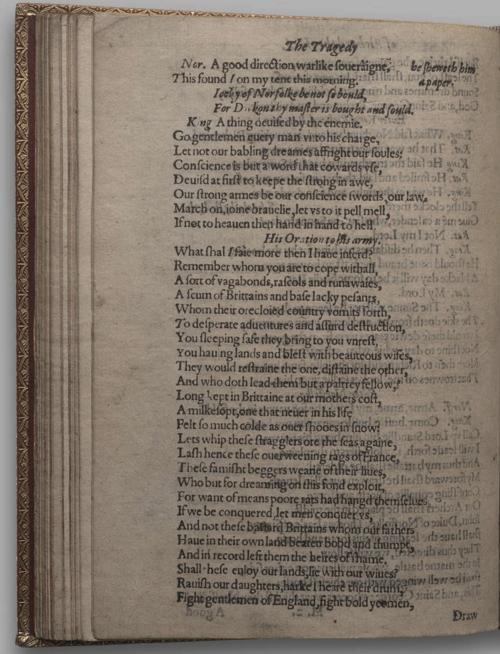 The Tragedy
Nor. A good direction warlike soueraigne,
he sheweth him
This found I on my tent this morning.
a paper.
Iocky of Norfolke be not so bould,
For Dickon thy master is bought and sould.
King A thing deuised by the enemie.
Go gentlemen euery man vnto his charge,
Let not our babling dreames affright our soules:
Conscience is but a word that cowards vse,
Deuisd at first to keepe the strong in awe,
Our strong armes be our conscience swords, our law.
March on, ioine brauelie, let vs to it pell mell,
If not to heauen then hand in hand to hell.
His Oration to his army.
What shal I saie more then I haue inferd?
Remember whom you are to cope withall,
A sort of vagabonds, rascols and runawaies,
A scum of Brittains and base lacky pesants,
Whom their orecloied country vomits forth,
To desperate aduentures and assurd destruction,
You sleeping safe they bring to you vnrest,
You hauing lands and blest with beauteous wifes,
They would restraine the one, distaine the other,
And who doth lead them but a paltrey fellow?
Long kept in Brittaine at our mothers cost,
A milkesopt, one that neuer in his life
Felt so much colde as ouer shooes in snow:
Lets whip these stragglers ore the seas againe,
Lash hence these ouerweening rags of France,
These famisht beggers wearie of their liues,
Who but for dreaming on this fond exploit,
For want of means poore rats had hangd themselues.
If we be conquered, let men conquer vs,
And not these bastard Brittains whom our fathers
Haue in their own land beaten bobd and thumpt,
And in record left them the heires of shame.
Shall these enioy our lands, lie with our wiues?
Rauish our daughters, harke I heare their drum,
Fight gentlemen of England, fight bold yeomen,
Draw